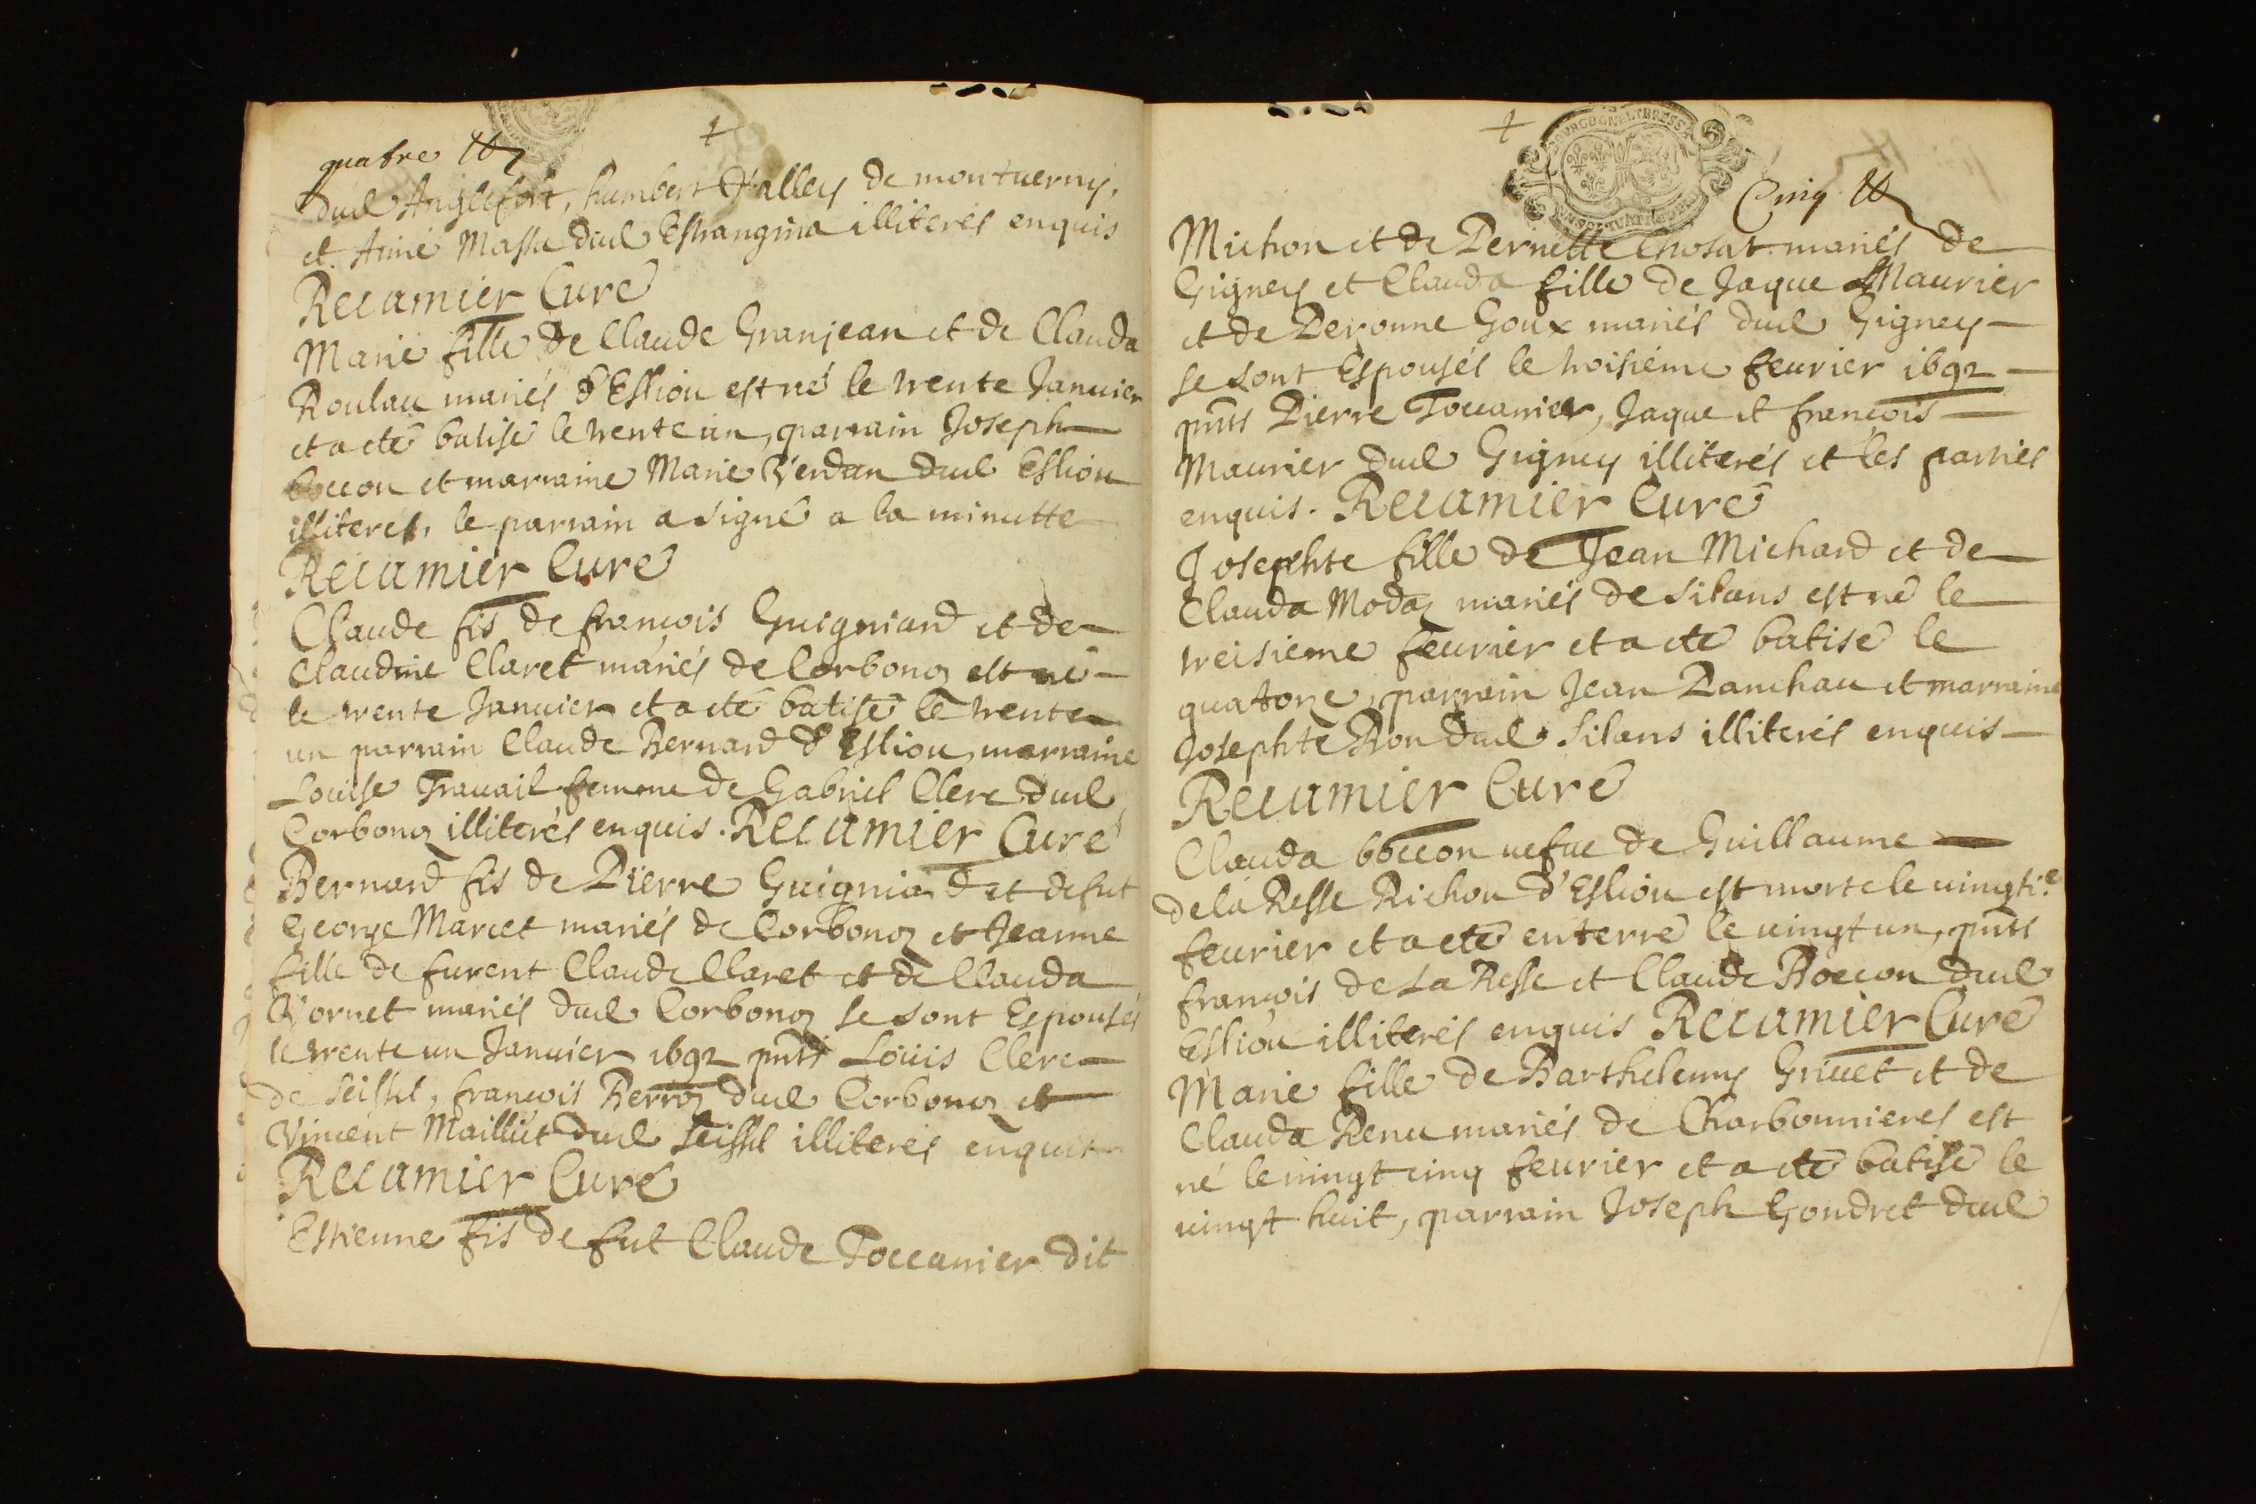 quatre
dud Anglefort, humbert Falley de montuerny,
et Aimé Massu dud Estrangina illiterés enquis
Recamier Curé
Marie fille de Claude Granjean et de Clauda
Roulau mariés d'Esliou est né le trente Januier
et a eté batisé le trente un, parrain Joseph
boccon et marraine Marie Verdan dud Esliou
illiteres, le parrain a signé a la minutte
Recamier Curé
Claude fis de françois Guigniard et de
Claudine Claret mariés de Corbonoz est né
le trente Januier et a eté batisé le trente
un parrain Claude Bernard d'Esliou, marraine
Louise Trauail femme de Gabriel Clerc dud
Corbonoz illiterés enquis. Recamier Curé
Bernard fis de Pierre Guigniard et de fut
George Marcet mariés de Corbonoz et Jeanne
fille de furent Claude Claret et de Clauda
Vornet mariés dud Corbonoz se sont Espousés
le trente un Januier 1692 pnts Loüis Clerc
de Seissel, françois Berroz dud Corbonoz et
Vincent Maillút dud Seissel illiterés enquis
Recamier Curé
Estienne fis de fut Claude Toccanier dit
BOURGOGNE ET BRESSE
Cinq
Michon et de Pernette Chosat mariés de
Gigney et Clauda fille de Jaque Maurier
et de Peronne Goux mariés dud Gigney
se sont Espousés le troisiéme feurier 1692
pnts Pierre Toccanier, Jaque et françois
Maurier dud Gigney illiterés et les parties
enquis. Recamier Curé
Josephte fille de Jean Michard et de
Clauda Modaz mariés de Silans est né le
treisieme feurier et a eté batisé le
quatorze, parrain Jean Panchau et marraine
Josephte Ron dud Silans illiterés enquis
Recamier Curé
Clauda boccon uefue de Guillaume
de la Resse Richou d'Esliou est morte le uingtie
feurier et a eté enterré le uingt un, pnts
françois de La Resse et Claude Boccon dud
Esliou illiterés enquis Recamier Curé
Marie fille de Barthelemy Griuet et de
Clauda Renu mariés de Charbonnieres est
né le uingt cinq feurier et a eté batisé le
uingt huit, parrain Joseph Gondret dud